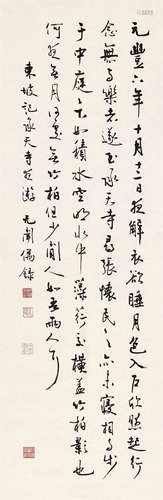 元豐六年十月十二日夜解衣欲睡月色入戶欣然起行
念無與樂者遂至承天寺尋張懷民々亦未寢相與步
于中庭々下如積水空明水中藻荇交橫蓋竹柏影也
何夜無月何處無竹柏但少閒人如吾兩人耳
東坡記承天寺夜遊 錄